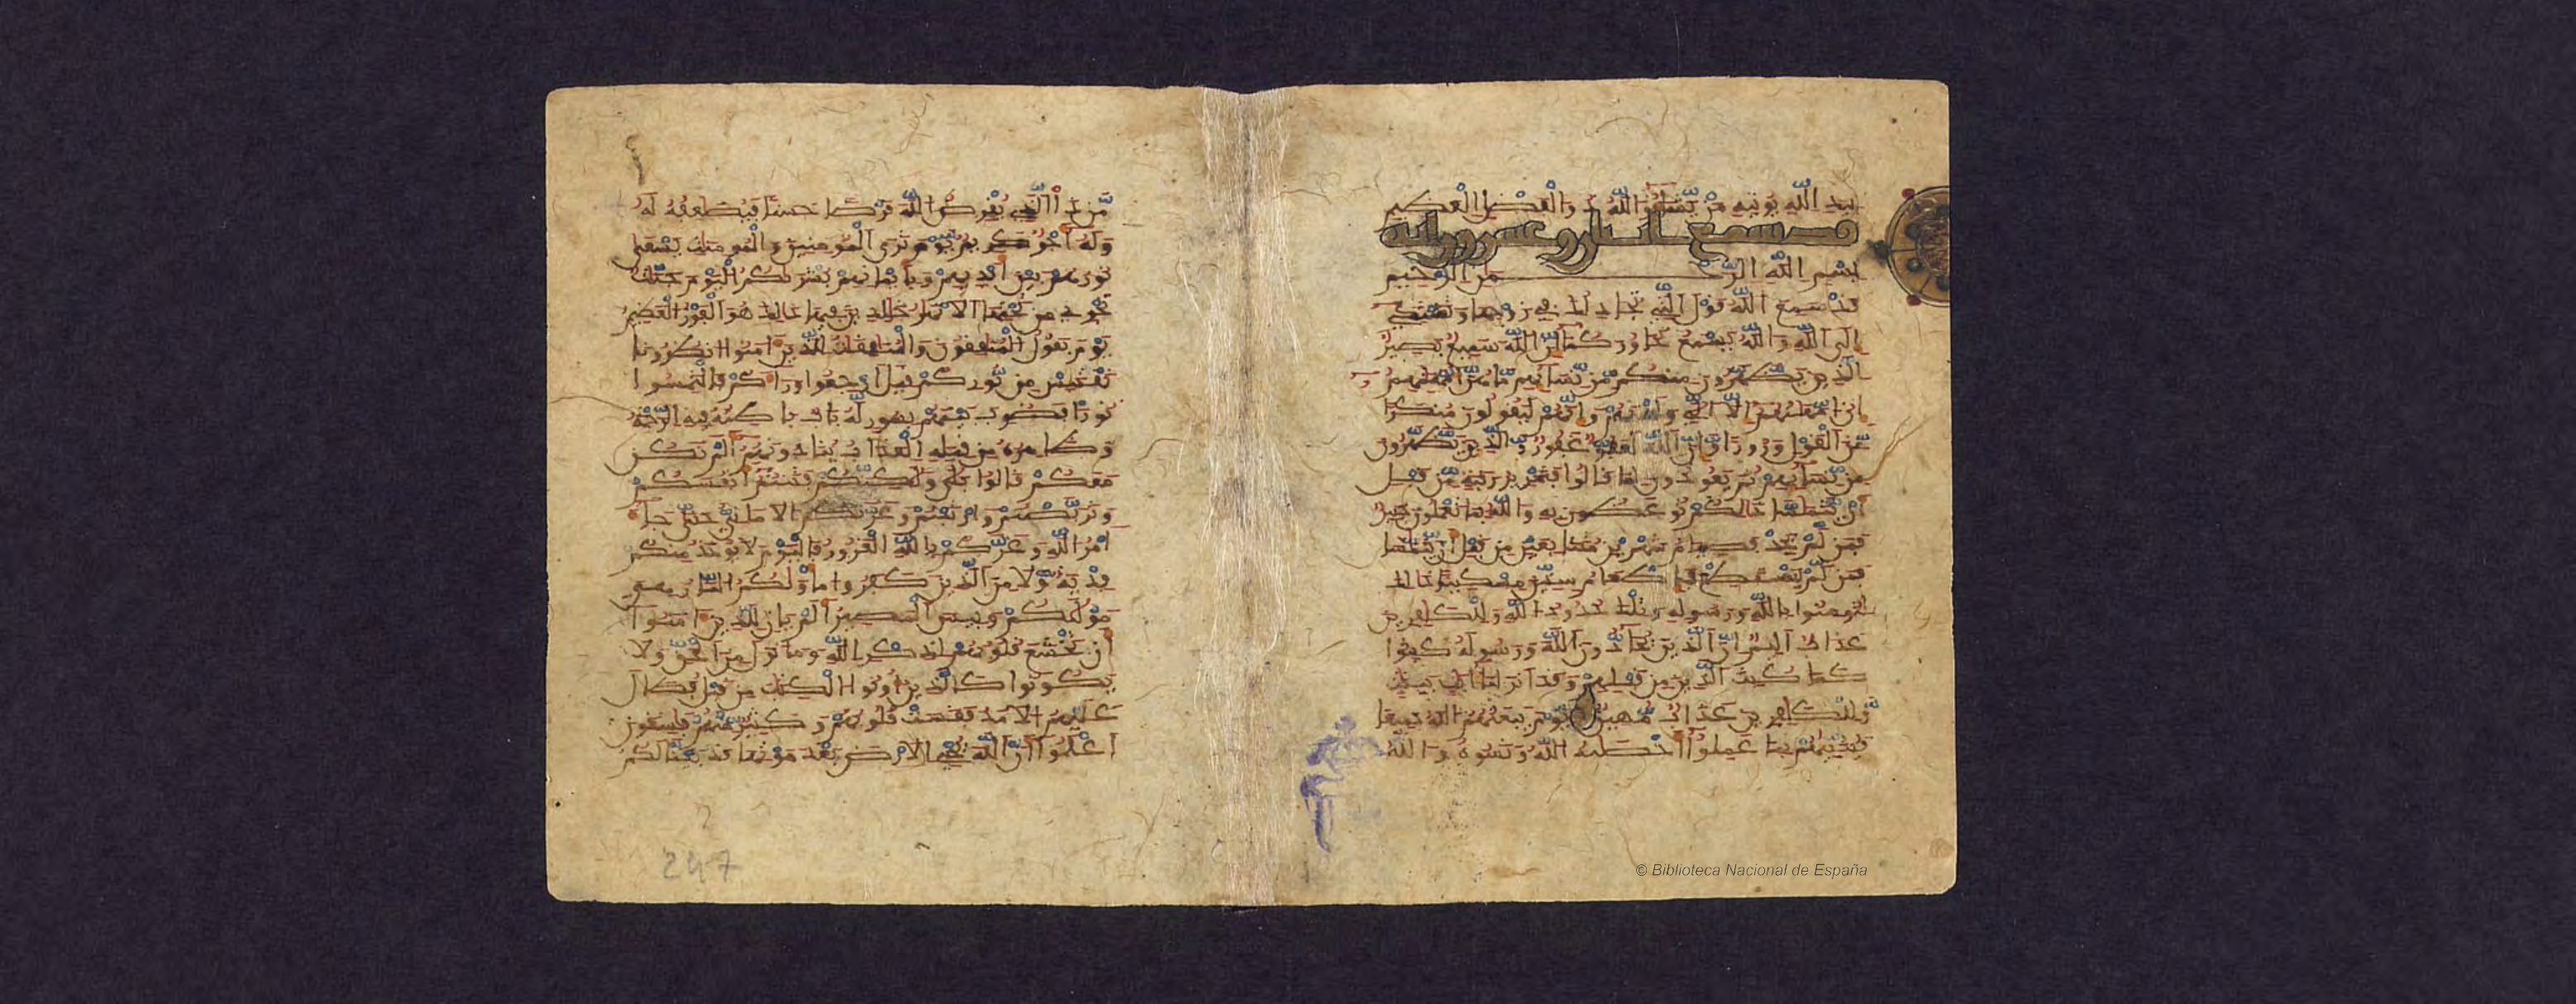 بيد الله يوتيه من يشاء والله ذو الفضل العظيم
قد سمع اثنان وعشرون اية
بسم الله الرحمن الرحيم
قد سمع الله قول التي تجادلك في زوجها وتشتكي
الى الله والله يسمع تحاوركما ان الله سميع بصير
الذين يظهرون منكم من نسائهم ما هن امهتهم
ان امهتهم الا الي ولدنهم وانهم ليقولون منكرا
من القول وزورا وان الله لعفو غفور والذين يظهرون
من نسائهم ثم يعودون لما قالوا فتحرير رقبة من قبل
ان يتماسا ذلكم توعظون به والله بما تعملون خبير
فمن لم يجد فصيام شهرين متتابعين من قبل ان يتماسا
فمن لم يستطع فاطعام ستين مسكينا ذلك
لتومنوا بالله ورسوله وتلك حدود الله وللكفرين
عذاب اليم ان الذين يحادون الله ورسوله كبتوا
كما كبت الذين من قبلهم وقد انزلنا ايت بينت
وللكفرين عذاب مهين يوم يبعثهم الله جميعا
فينبئهم بما عملوا احصيه الله ونسوه والله
من ذا الذي يقرض الله قرضا حسنا فيضعفه له
وله اجر كريم يوم ترى المومنين والمومنت يسعى
نورهم بين ايديهم وبايمنهم بشريكم اليوم جنت
تجري من تحتها الانهر خلدين فيها ذلك هو الفوز العظيم
يوم يقول المنفقون والمنفقت للذين امنوا انظرونا
نقتبس من نوركم قيل ارجعوا وراكم فالتمسوا
نورا فضرب بينهم بسور له باب باطنه فيه الرحمة
وظهره من قبله العذاب ينادونهم الم نكن
معكم قالوا بلى ولكنكم فتنتم انفسكم
وتربصتم وارتبتم وغرتكم الاماني حتى جا
امر الله وغركم بالله الغرور فاليوم لا يوخذ منكم
فدية ولا من الذين كفروا ماويكم النار هي
موليكم وبيس المصير الم يان للذين امنوا
ان تخشع قلوبهم لذكر الله وما نزل من الحق ولا
يكونوا كالذين اوتوا الكتب من قبل فطال
عليهم الامد فقست قلوبهم وكثير منهم فسقون
اعلموا ان الله يحي الارض بعد موتها قد بينا لكم
247
© Biblioteca Nacional de España